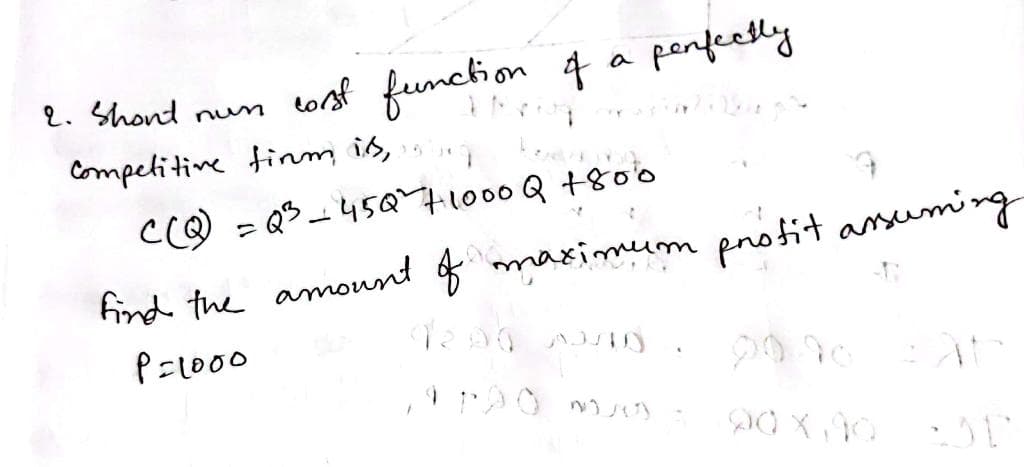 2. Short run cost function of a perfectly
competitive firm is,
C(Q) = Q³ - 45Q² + 1000Q + 800
find the amount of maximum profit assuming
P=1000